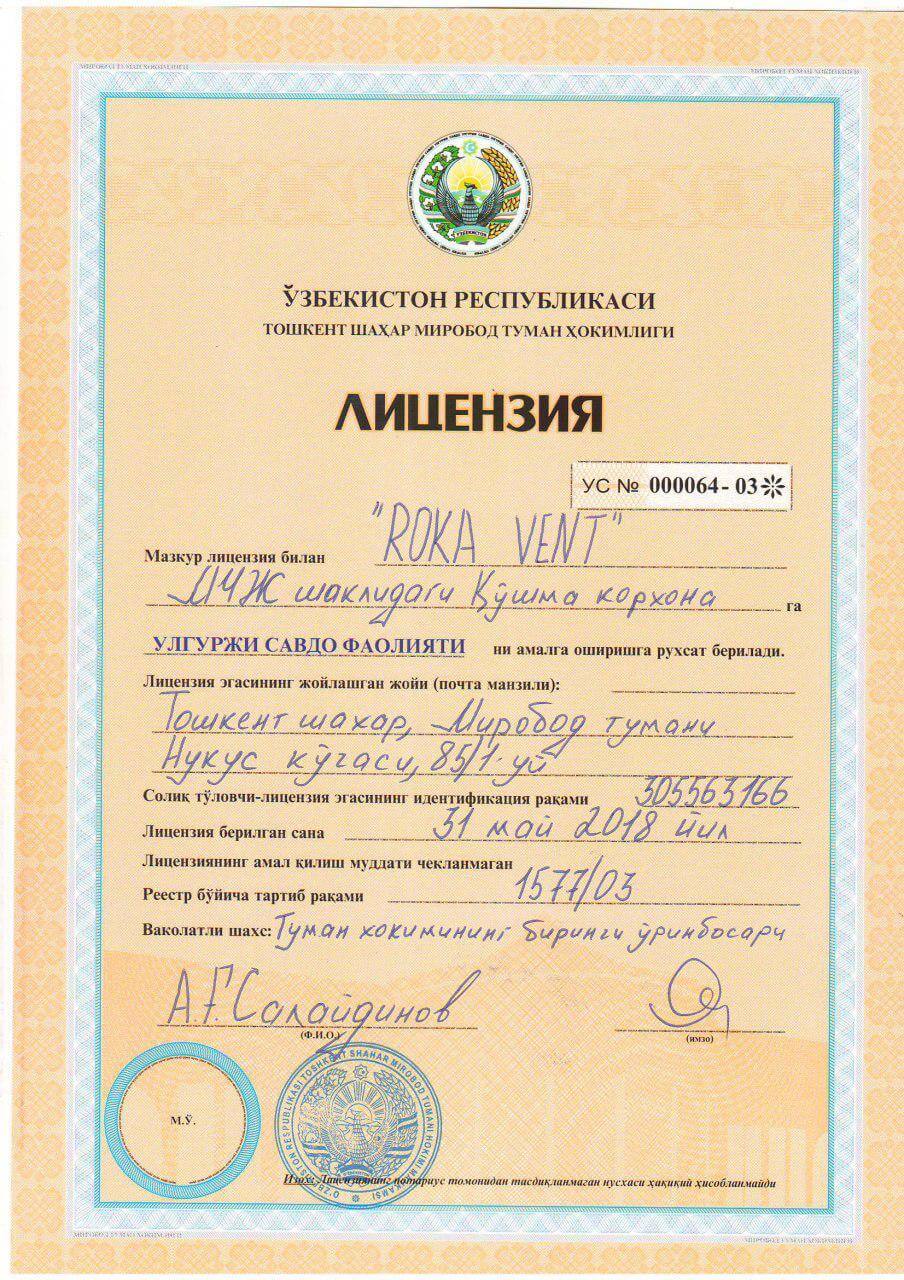 МИРОБОД ТУМАН ҲОКИМЛИГИ
МИРОБОД ТУМАН ҲОКИМЛИГИ
ЎЗБЕКИСТОН
ЎЗБЕКИСТОН РЕСПУБЛИКАСИ
ТОШКЕНТ ШАҲАР МИРОБОД ТУМАН ҲОКИМЛИГИ
ЛИЦЕНЗИЯ
УС № 000064 - 03
Мазкур лицензия билан "ROKA VENT"
МЧЖ шаклидаги Қўшма корхона га
УЛГУРЖИ САВДО ФАОЛИЯТИ ни амалга оширишга рухсат берилади.
Лицензия эгасининг жойлашган жойи (почта манзили):
Тошкент шахар, Миробод тумани
Нукус кўчаси, 85/1-уй
Солиқ тўловчи-лицензия эгасининг идентификация рақами 305563166
Лицензия берилган сана 31 май 2018 йил
Лицензиянинг амал қилиш муддати чекланмаган
Реестр бўйича тартиб рақами 1577/03
Ваколатли шахс: Туман хокимининг биринчи ўринбосари
А.Ғ.Салайдинов
(Ф.И.О.) (имзо)
O'ZBEKISTON RESPUBLIKASI TOSHKENT SHAHAR MIROBOD TUMANI HOKIMI MAHKAMASI
М.Ў.
Изоҳ: Лицензиянинг нотариус томонидан тасдиқланмаган нусхаси ҳақиқий ҳисобланмайди
МИРОБОД ТУМАН ҲОКИМЛИГИ
МИРОБОД ТУМАН ҲОКИМЛИГИ